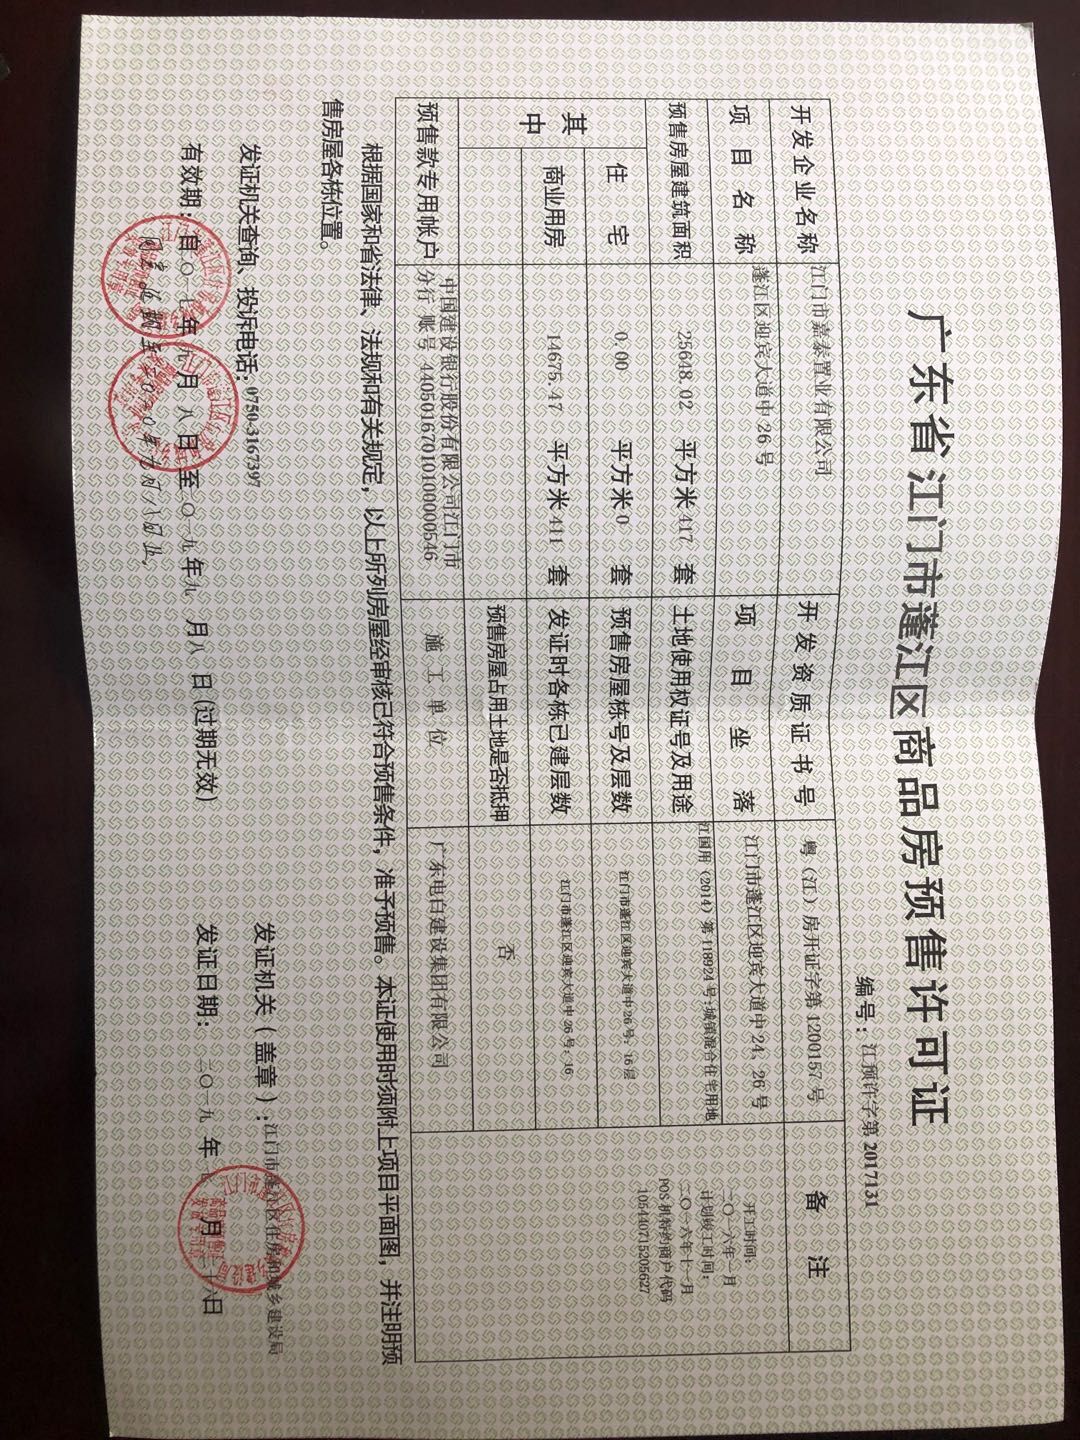 广东省江门市蓬江区商品房预售许可证
编号：江预许字第 2017131
开发企业名称 江门市嘉泰置业有限公司 开发资质证书号 粤（江）房开证字第 1200157 号 备注
项目名称 蓬江区迎宾大道中 26 号 项目坐落 江门市蓬江区迎宾大道中 24，26 号
预售房屋建筑面积 25648.02 平方米 417 套 土地使用权证号及用途 江国用（2014）第 118924 号;城镇混合住宅用地
其中 住宅 0.00 平方米 0 套 预售房屋栋号及层数 江门市蓬江区迎宾大道中26号: 16层
商业用房 14675.47 平方米 411 套 发证时各栋已建层数 江门市蓬江区迎宾大道中26号: 16
预售房屋占用土地是否抵押 否
预售款专用帐户 中国建设银行股份有限公司江门市
分行 账号 44050167010100000546 施工单位 广东电白建设集团有限公司
开工时间:
二〇一六年一月
计划竣工时间:
二〇一六年十一月
POS 机特约商户代码
105440715205627
根据国家和省法律、法规和有关规定，以上所列房屋经审核已符合预售条件，准予预售。本证使用时须附上项目平面图，并注明预
售房屋各栋位置。
发证机关查询、投诉电话: 0750-3167397 发证机关（盖章）: 江门市蓬江区住房和城乡建设局
有效期: 自二〇一七年九月八日至二〇一九年九月八日(过期无效) 发证日期: 二〇一九年 月二十六日
同意延期至2020年九月八日止.